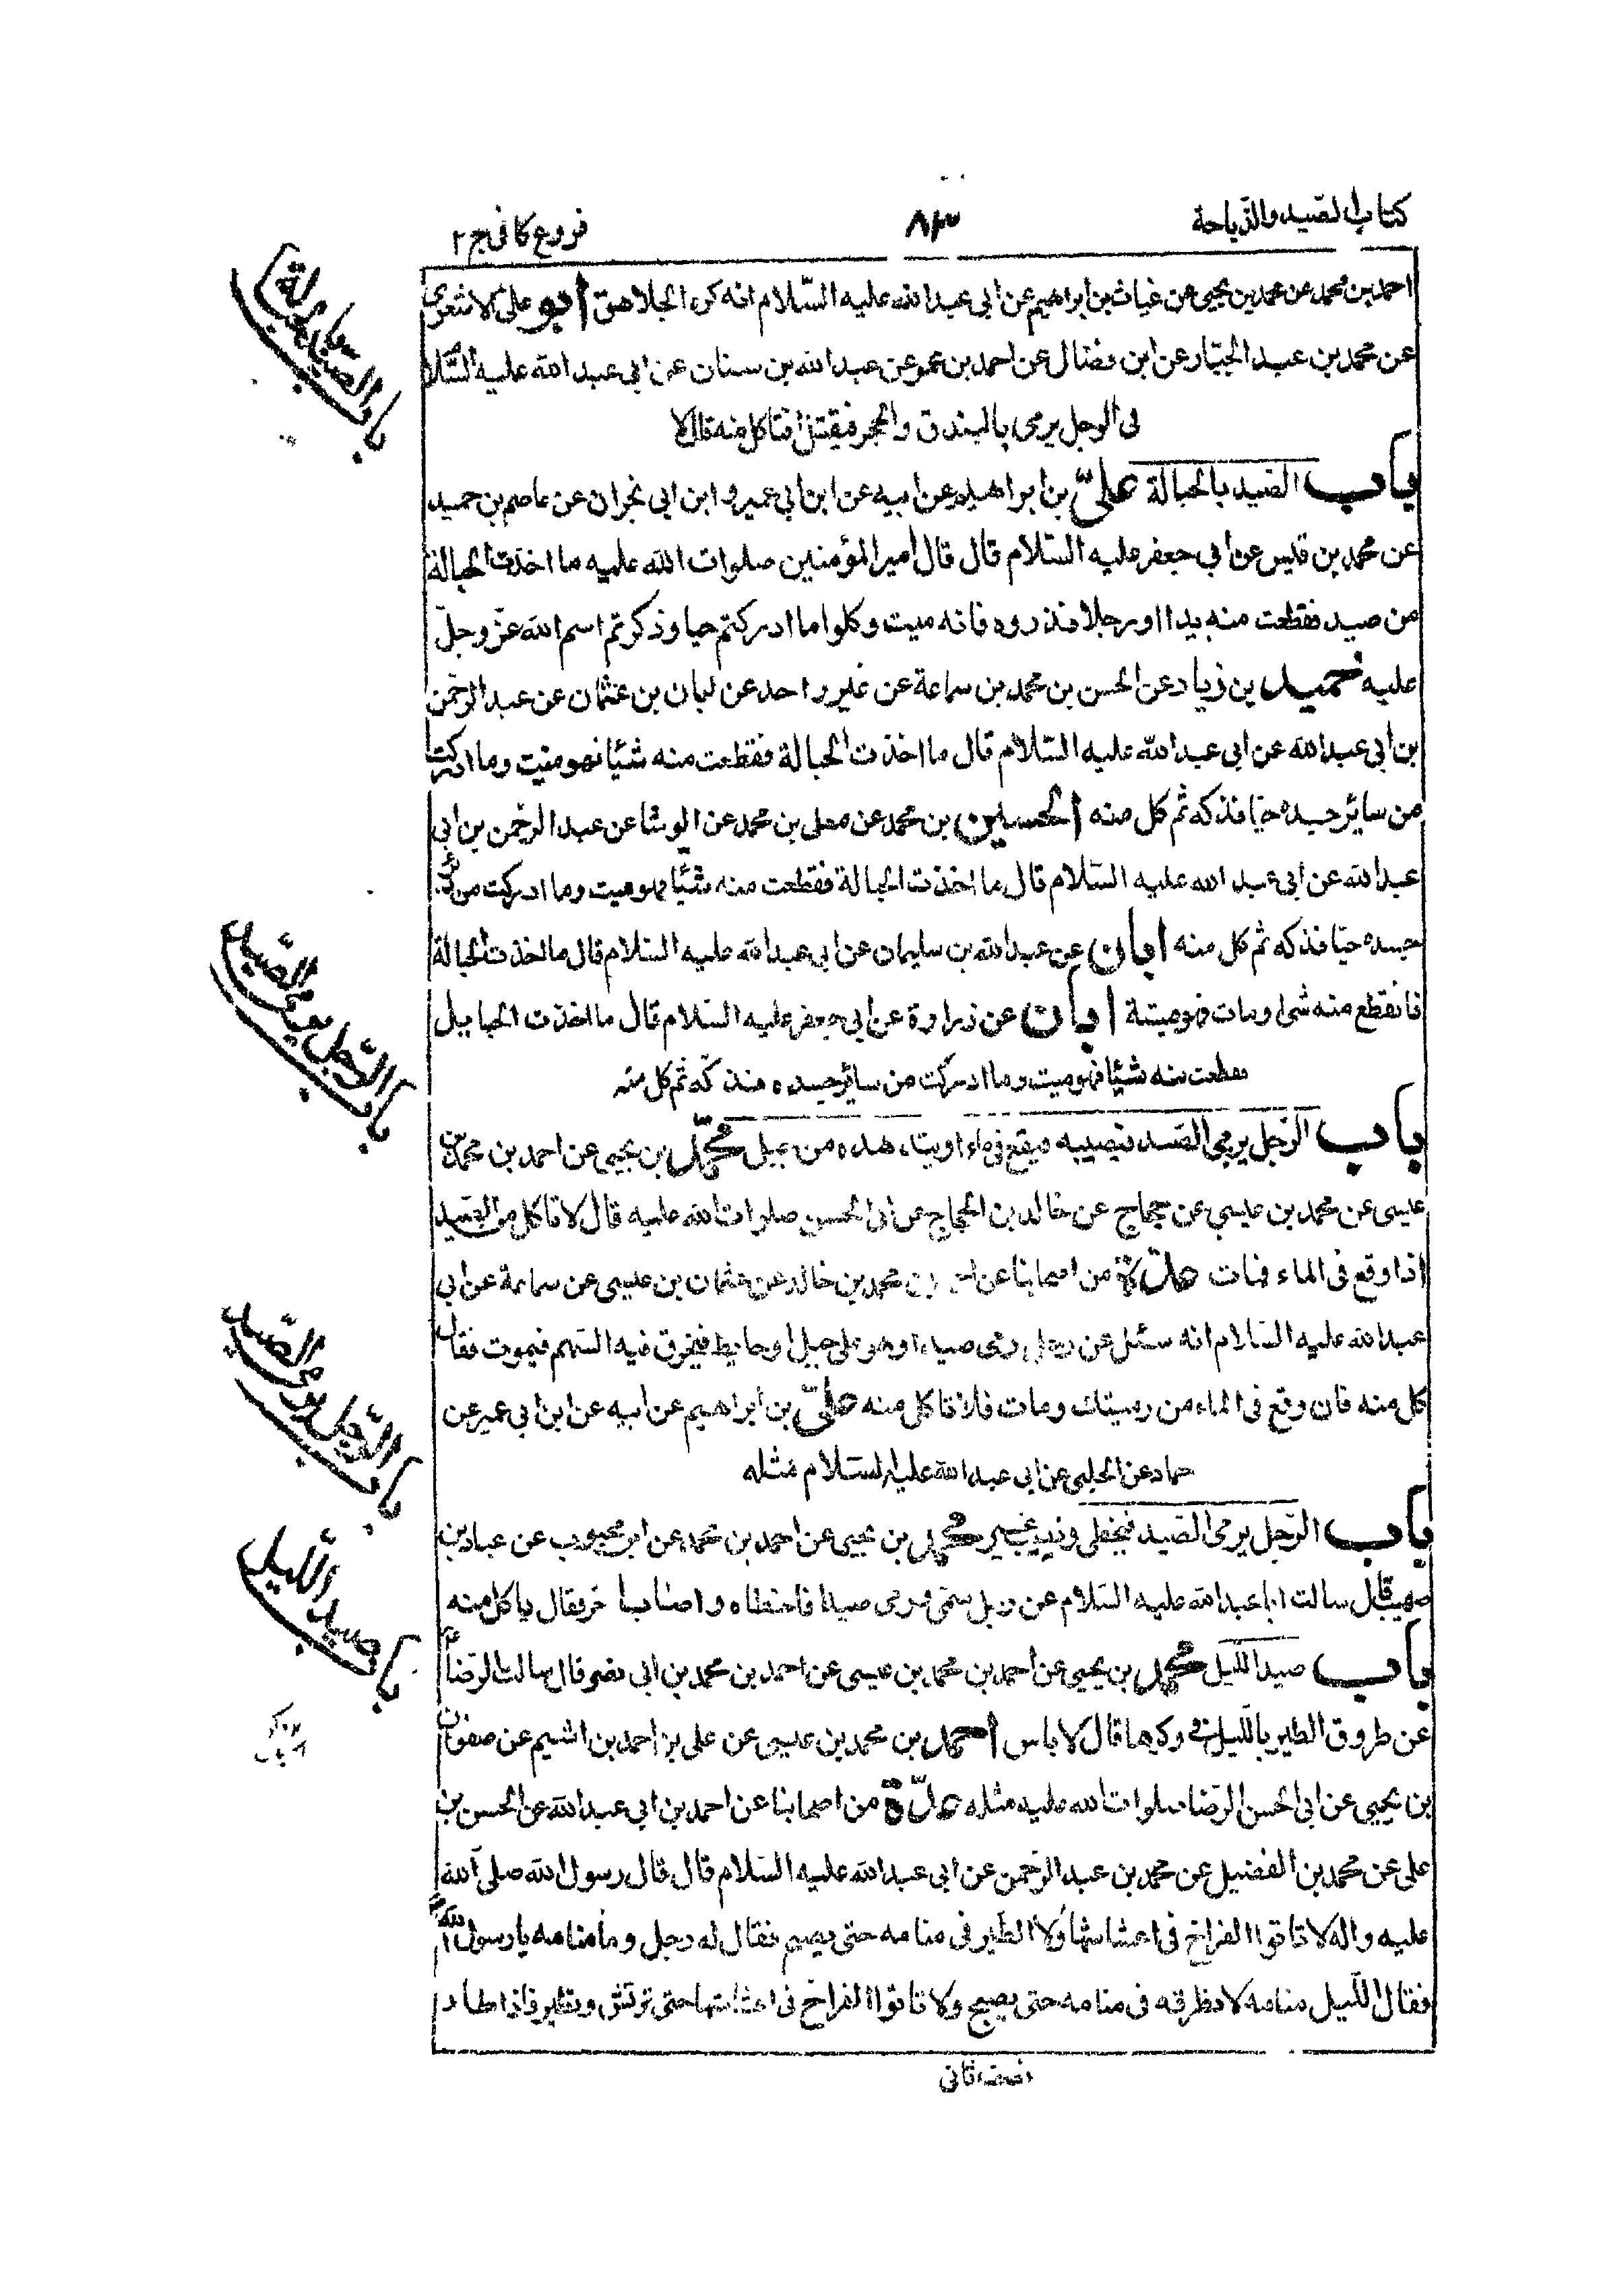 كتاب الصيد والذباحة
٨٣
فروع كافى ج٢
احمد بن محمد عن محمد بن يحيى عن غياث بن ابراهيم عن ابى عبد الله عليه السّلام انه كره الجلاهق ابو على الاشعرى
عن محمد بن عبد الجبّار عن ابن فضال عن احمد بن عمر عن عبد الله بن سنان عن ابى عبد الله عليه السّلا
فى الرجل يرمى بالبندق والحجر فيقتل افتاكل منه قال لا
باب الصيد بالحبالة علىّ بن ابراهيم عن ابيه عن ابن ابي عمير و ابن ابى نجران عن عاصم بن حميد
عن محمد بن قيس عن ابي جعفر عليه السّلام قال قال امير المؤمنين صلوات الله عليه ما اخذت الحبالة
من صيد فقطعت منه يدا او رجلا فذروه فانه ميت وكلوا ما ادركتم حيا وذكرتم اسم الله عزّ وجلّ
عليه حميد بن زياد عن الحسن بن محمد بن سماعة عن غير واحد عن ابان بن عثمان عن عبد الرحمن
بن ابي عبد الله عن ابى عبد الله عليه السّلام قال ما اخذت الحبالة فقطعت منه شيئا فهو ميت وما ادركت
من سائر جسده حيّا فذكه ثم كل منه الحسين بن محمد عن معلى بن محمد عن الوشا عن عبد الرحمن بن ابى
عبد الله عن ابى عبد الله عليه السّلام قال ما اخذت الحبالة فقطعت منه شيئا فهو ميت وما ادركت من سائر
جسده حيّا فذكه ثم كل منه ابان عن عبد الله بن سليمان عن ابى عبد الله عليه السّلام قال ما اخذت الحبالة
فانقطع منه شئ او مات فهو ميتة ابان عن زرارة عن ابى جعفر عليه السّلام قال ما اخذت الحبايل
فقطعت منه شيئا فهو ميت وما ادركت من سائر جسده فذكه ثم كل منه
باب الرّجل يرمى الصيد فيصيبه فيقع فى ماء او يتدهده من جبل محمّد بن يحيى عن احمد بن محمد بن
عيسى عن محمد بن عيسى عن حجاج عن خالد بن الحجاج عن ابى الحسن صلوات الله عليه قال لا تاكل من الصّيد
اذا وقع فى الماء فمات عدّة من اصحابنا عن احمد بن محمد بن خالد عن عثمان بن عيسى عن سماعة عن ابى
عبد الله عليه السّلام انه سئل عن رجل رمى صيدا وهو على جبل او حايط فيخرق فيه السّهم فيموت فقال
كل منه فان وقع فى الماء من رميتك ومات فلا تاكل منه علىّ بن ابراهيم عن ابيه عن ابن ابى عمير عن
حماد عن الحلبى عن ابى عبد الله عليه السّلام مثله
باب الرّجل يرمى الصّيد فيخطى ويصيب غيره محمّد بن يحيى عن احمد بن محمد عن ابن محبوب عن عباد بن
صهيب قال سالت ابا عبد الله عليه السّلام عن رجل سمّى ورمى صيدا فاخطاه واصاب اخر فقال ياكل منه
باب صيد اللّيل محمّد بن يحيى عن احمد بن محمد بن عيسى عن احمد بن محمد بن ابى نصر قال سالت الرّضا ع
عن طروق الطير باللّيل فى وكرها قال لا باس احمد بن محمد بن عيسى عن على بن احمد بن اشيم عن صفوان
بن يحيى عن ابى الحسن الرّضا صلوات الله عليه مثله عدّة من اصحابنا عن احمد بن ابى عبد الله عن الحسن بن
على عن محمد بن الفضيل عن محمد بن عبد الرّحمن عن ابى عبد الله عليه السّلام قال قال رسول الله صلى الله
عليه واله لا تاتوا الفراخ فى اعشاشها ولا الطّير فى منامه حتى يصبح فقال له رجل وما منامه يا رسول الله
فقال اللّيل منامه لا تطرقه فى منامه حتى يصبح ولا تاتوا الفراخ فى اعشاشها حتى تريّش ويطير فاذا طار
نصف ثانى
باب الصيد بالحبالة
باب الرّجل يرمى الصّيد
باب الرّجل يرمى الصّيد
باب صيد اللّيل